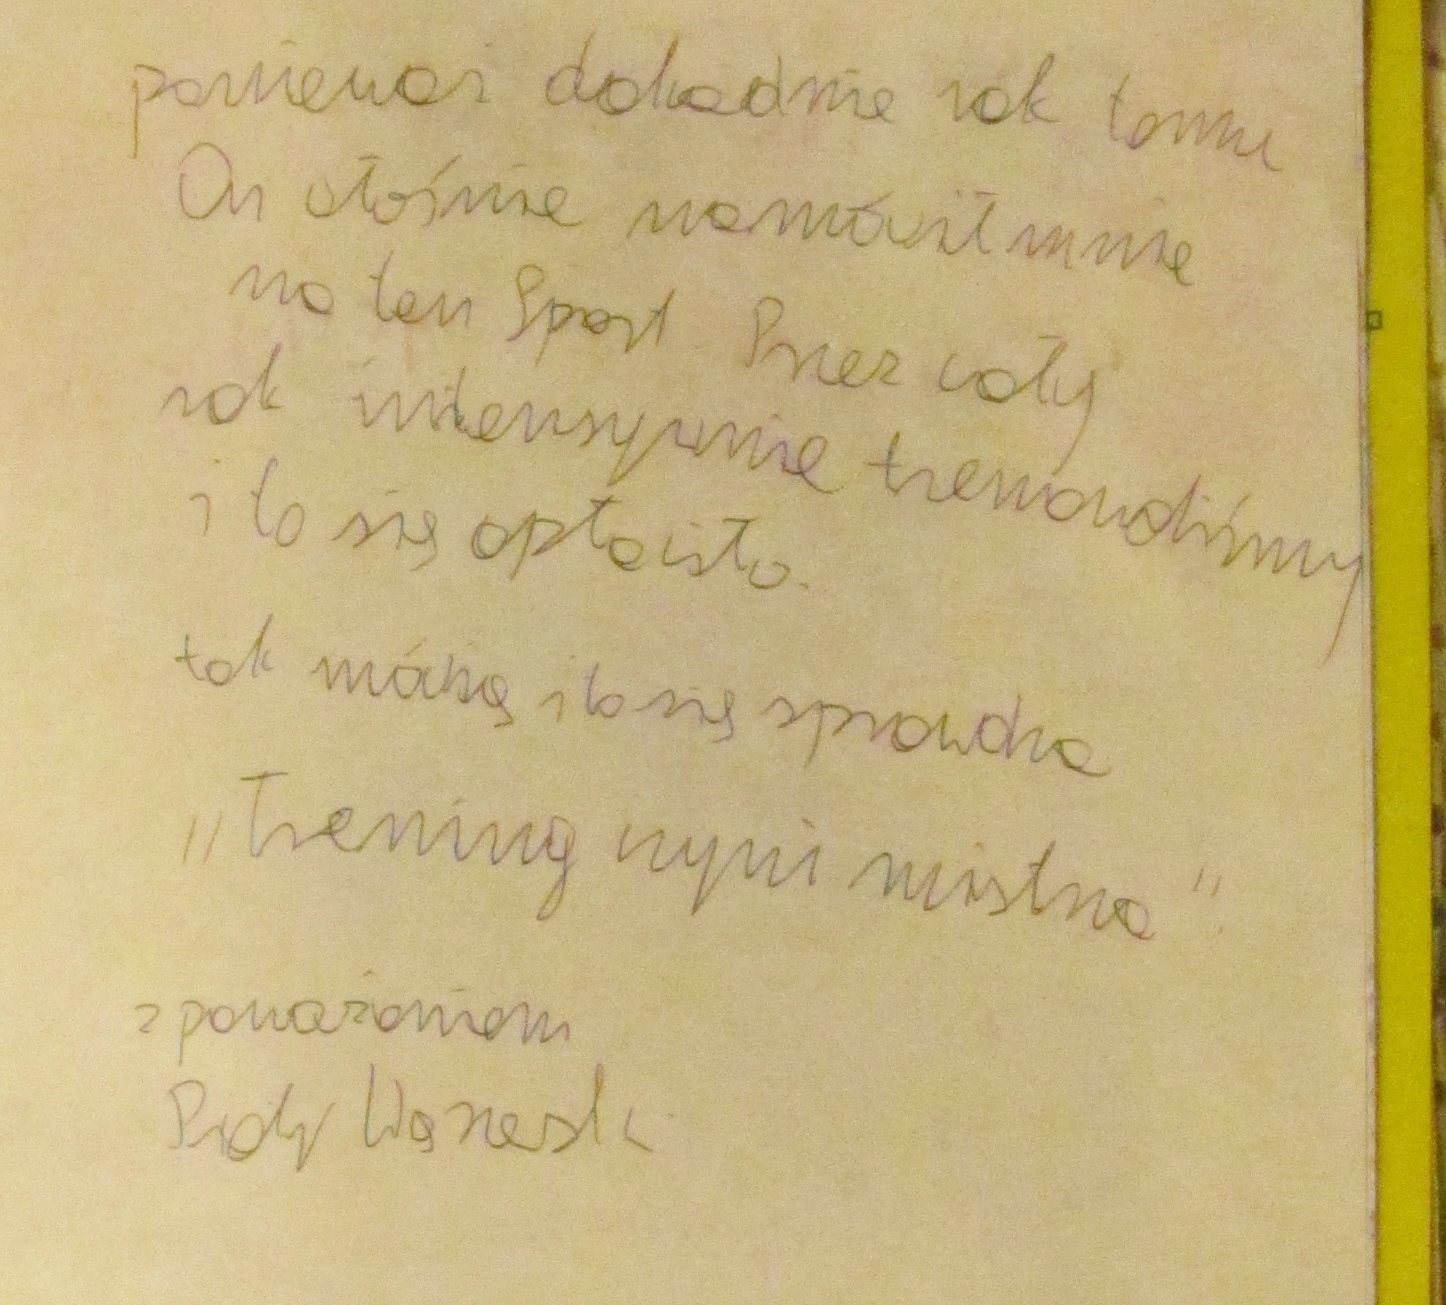 ponieważ dokładnie rok temu
On właśnie namówił mnie
na ten Sport. Przez cały
rok intensywnie trenowaliśmy
i to się opłaciło.
tak mówią i to się sprawdza
"Trening czyni mistrza".
z poważaniem